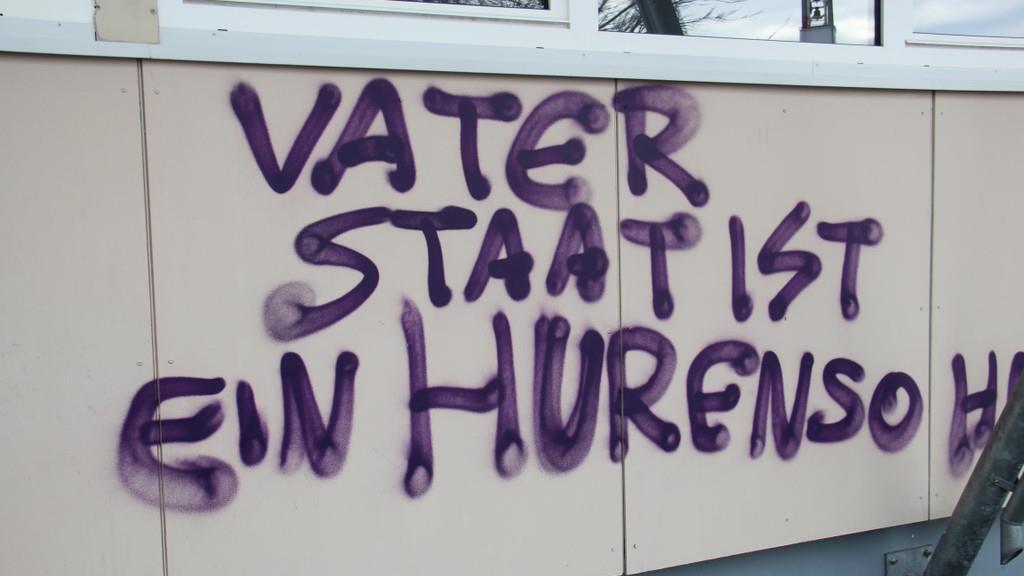 VATER
STAAT IST
EIN HURENSO H